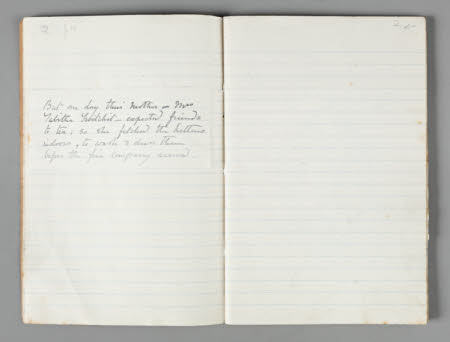 2
But one day their mother — Mrs
Tabitha Twitchit — expected friends
to tea; so she fetched the kittens
indoors, to wash & dress them
before the fine company arrived